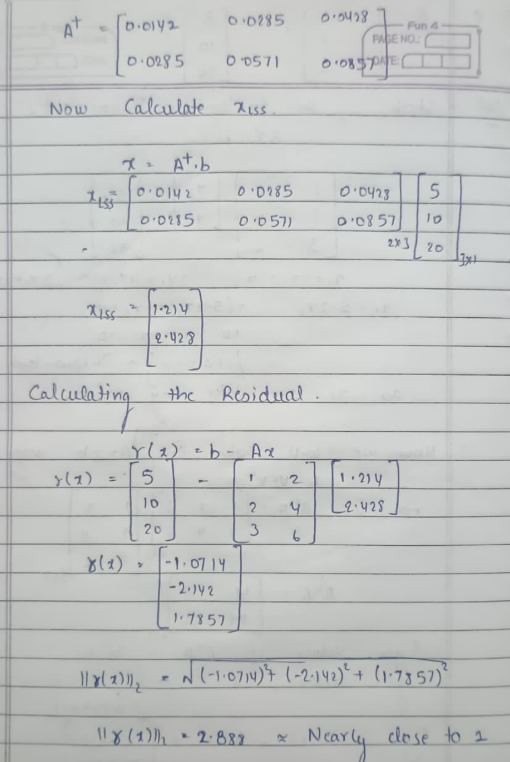 Fun 4
PAGE NO.:
DATE:
A⁺ = [0.0142 0.0285 0.0428
0.0285 0.0571 0.0857]
Now Calculate xLSS.
x = A⁺.b
xLSS = [0.0142 0.0285 0.0428 [5
0.0285 0.0571 0.0857]2x3 10
20]3x1
xLSS = [1.214
2.428]
Calculating the Residual.
r(x) = b - Ax
r(x) = [5 - [1 2 [1.214
10 2 4 2.428]
20] 3 6]
r(x) = [-1.0714
-2.142
1.7857]
||r(x)||₂ = √(-1.0714)² + (-2.142)² + (1.7857)²
||r(x)||₂ = 2.988 ≈ Nearly close to 1